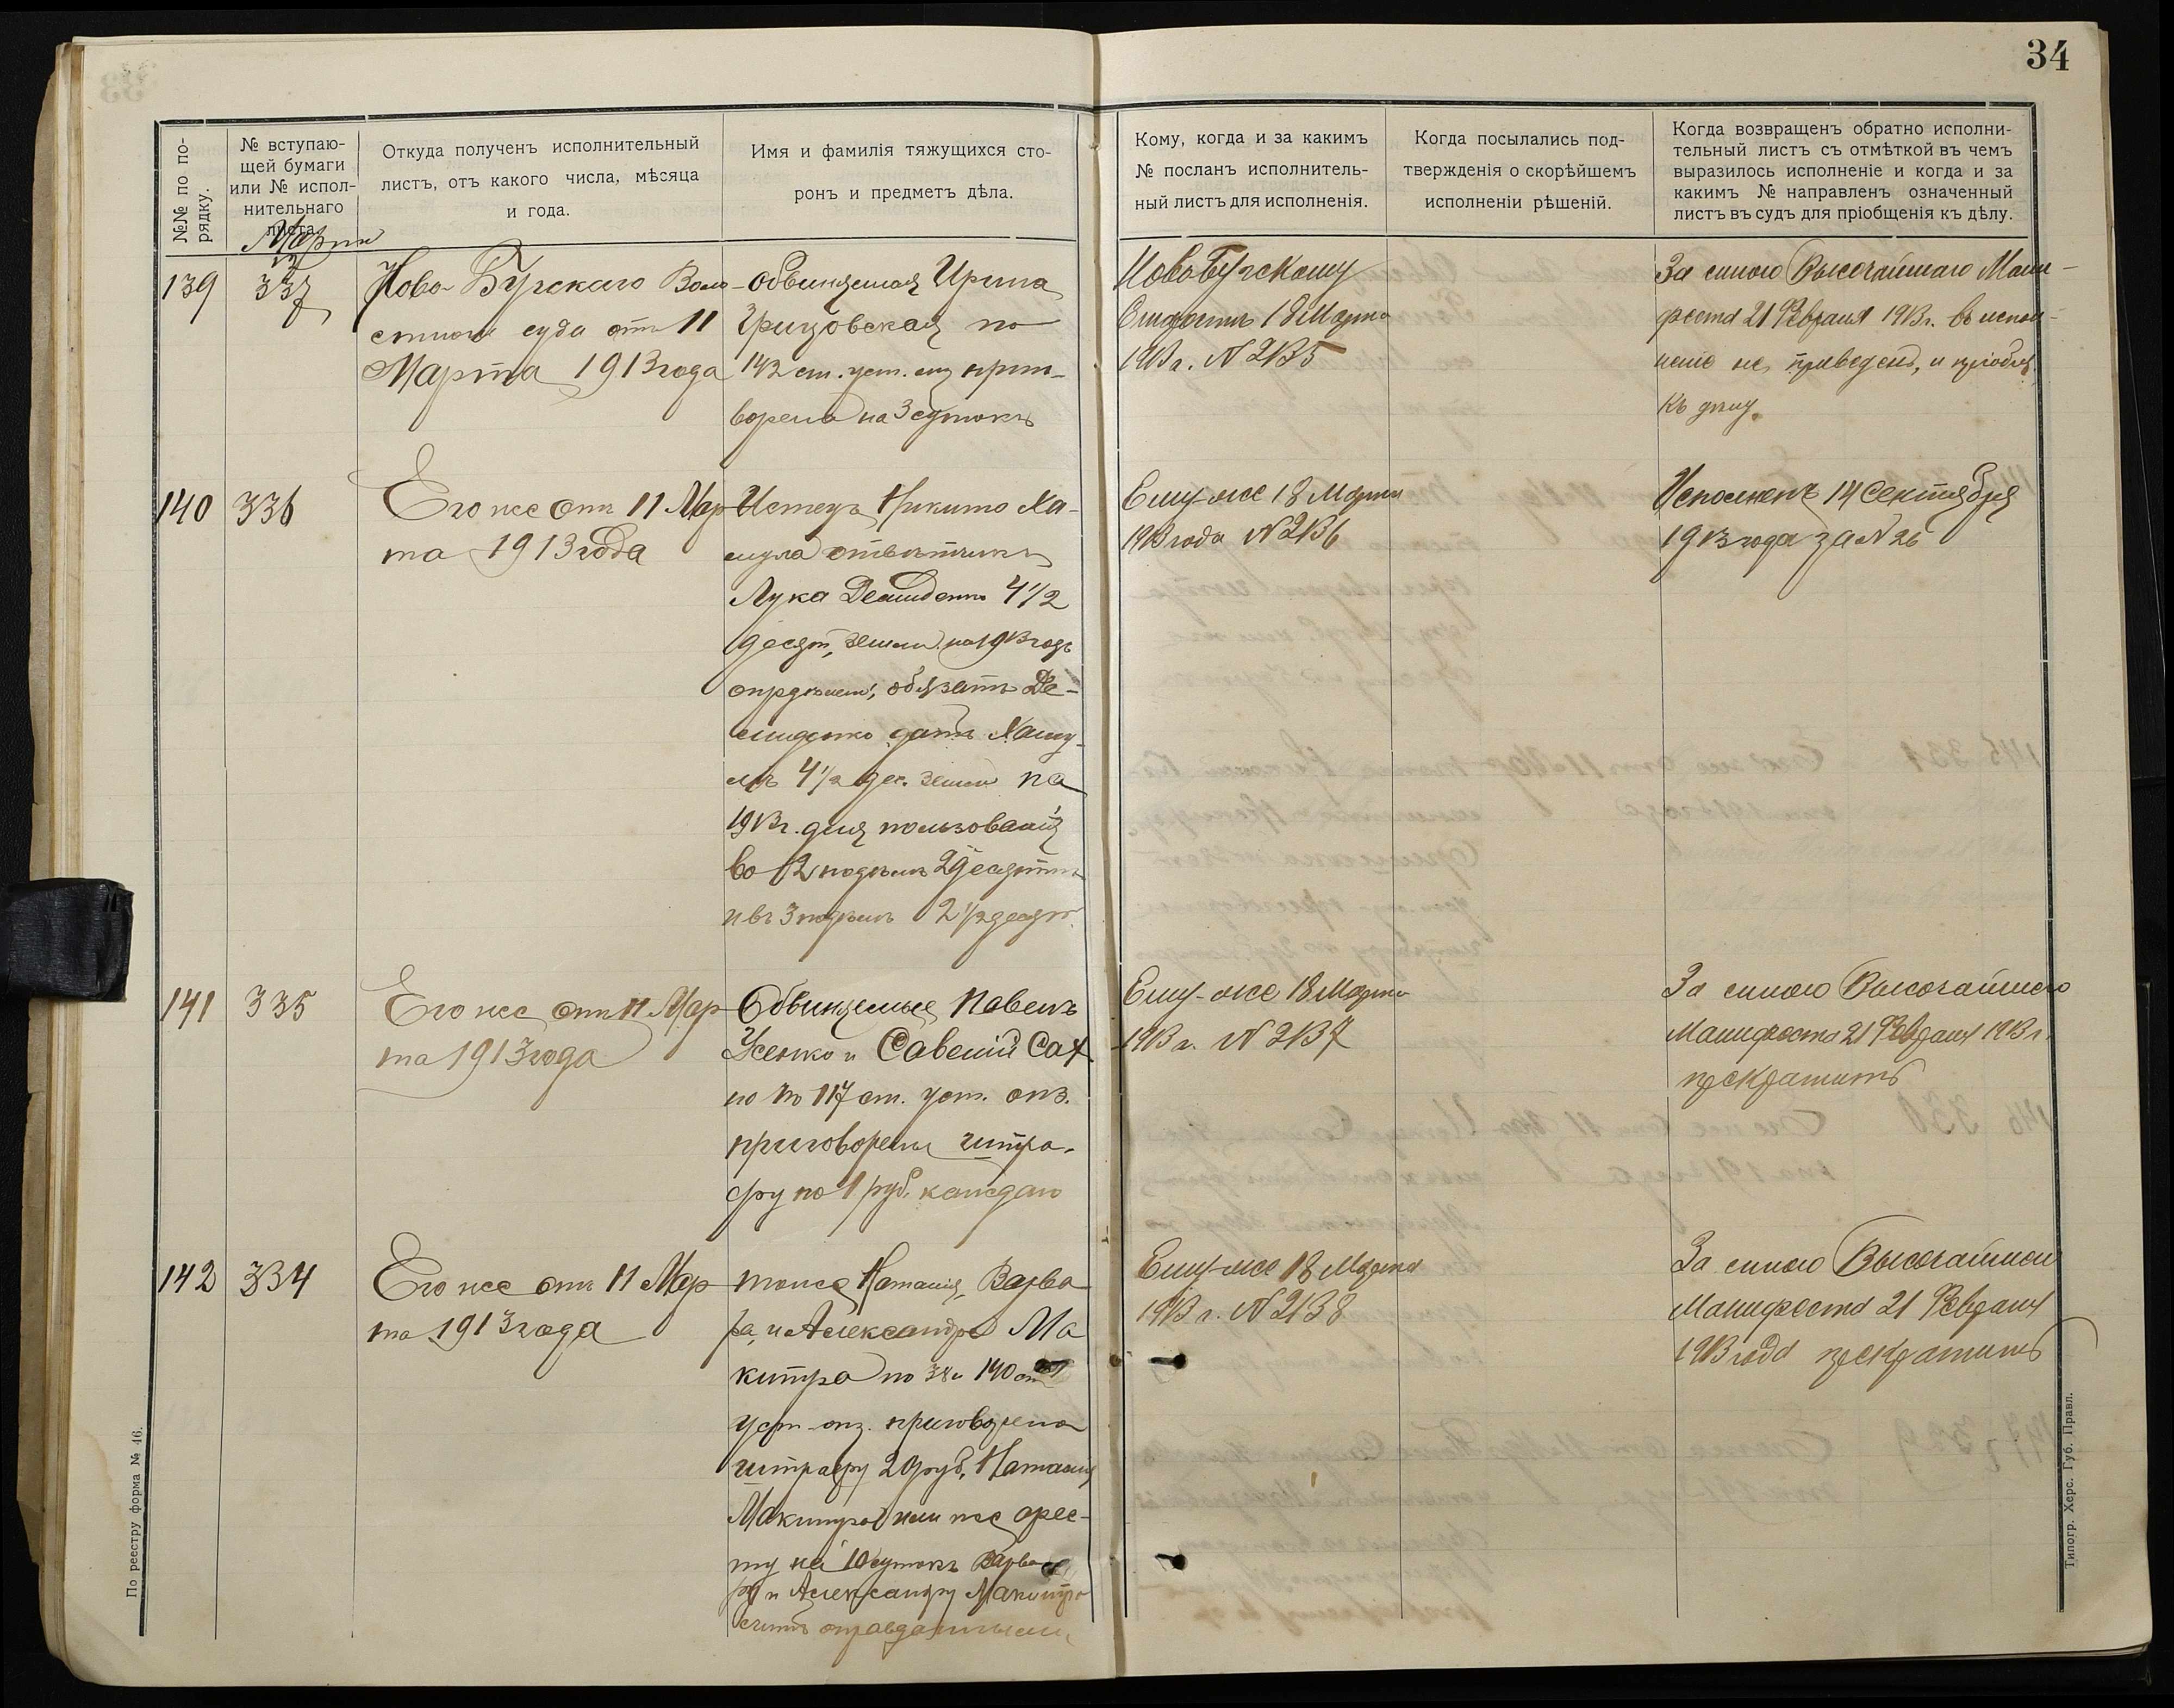 34
№№ по по-
рядку.
№ вступаю-
щей бумаги
или № испол-
нительнаго
листа.
Откуда полученъ исполнительный
листъ, отъ какого числа, мѣсяца
и года.
Имя и фамилія тяжущихся сто-
ронъ и предметъ дѣла.
Кому, когда и за какимъ
№ посланъ исполнитель-
ный листъ для исполненія.
Когда посылались под-
твержденія о скорѣйшемъ
исполненіи рѣшеній.
Когда возвращенъ обратно исполни-
тельный листъ съ отмѣткой въ чемъ
выразилось исполненіе и когда и за
какимъ № направленъ означенный
листъ въ судъ для пріобщенія къ дѣлу.
Марта
12
139
337
Ново-Бугскаго Воло-
стного суда отъ 11
Марта 1913 года
Обвиняемая Ирина
Грицовская по
142 ст. уст. приго-
ворена на 3 сутокъ
Новобугскому
Старостѣ 18 Марта
1913 г. N 2135
За силою Высочайшаго Мани-
феста 21 Февраля 1913 г. въ испол-
неніе не приведенъ, и пріобщ.
къ дѣлу.
140
336
Его же отъ 11 Мар
та 1913 года
Истецъ Никита Ха-
мула отвѣтчикъ
Лука Демиденко 4 1/2
десят. земли на 1913 годъ
опредѣлен. обязать Де-
миденко дать Хаму-
лѣ 4 1/2 дес. земли на
1913 г. для пользованія
во 2 подѣлѣ 2 десятин
и въ 3 подѣлѣ 2 1/2 десят.
Ему-же 18 Марта
1913 года N 2136
Исполненъ 14 Сентября
1913 года за N 26
141
335
Его же отъ 11 Мар
та 1913 года
Обвиняемые Павелъ
Усенко и Савелій Сах
но по 117 ст. уст. опз.
приговорены штра-
фу по 1 руб. каждаго
Ему-же 18 Марта
1913 г. N 2137
За силою Высочайшего
Манифеста 21 Февраля 1913 г.
прекратить
142
334
Его же отъ 11 Мар
та 1913 года
тоже Наталія, Варва
ра, и Александра Ма
китра по 38 и 140 ст
уст-опз. приговорена
штрафу 20 руб. Наталия
Макитра или же арес-
ту на 10 сутокъ Варва
ру и Александру Макитра
счить оправданными
Ему-же 18 Марта
1913 г. N 2138
За силою Высочайшаго
Манифеста 21 Февраля
1913 года прекратить
По реестру форма № 46.
Типогр. Херс. Губ. Правл.